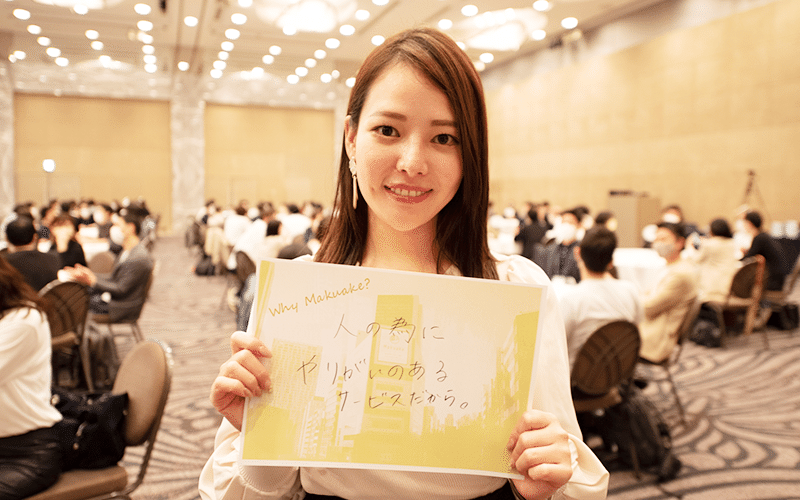 Why Makuake?
人の為に
やりがいのある
サービスだから。